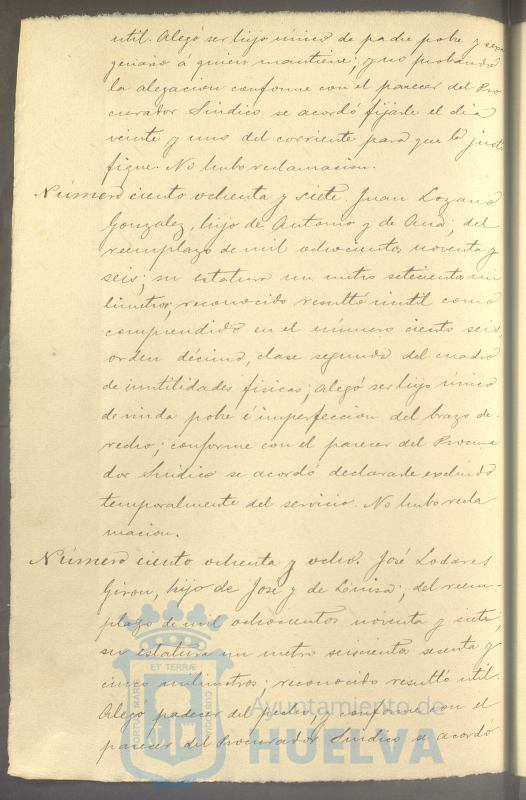 util. Alegó ser hijo único de padre pobre y sexa
genario á quien mantiene; y no probando
la alegacion conforme con el parecer del Pro
curador Síndico se acordó fijarle el dia
veinte y uno del corriente para que lo justi
fique. No hubo reclamacion.
Número ciento ochenta y siete. Juan Lozano
Gonzalez, hijo de Antonio y de Ana; del
reemplazo de mil ochocientos noventa y
seis; su estatura un metro setecientos mi
límetros; reconocido resultó inutil como
comprendido en el número ciento seis,
orden décimo, clase segunda del cuadro
de inutilidades físicas; alegó ser hijo único
de viuda pobre é imperfeccion del brazo de-
recho; conforme con el parecer del Procura
dor Síndico se acordó declararle excluido
temporalmente del servicio. No hubo recla
macion.
Número ciento ochenta y ocho. José Lodares
Giron, hijo de José y de Luisa; del reem-
plazo de mil ochocientos noventa y siete;
su estatura un metro seiscientos sesenta y
cinco milímetros; reconocido resultó util.
Alegó padecer del pecho, y conforme con el
parecer del Procurador Síndico se acordó
PORTUS MARIS ET TERRÆ CUSTODIA
Ayuntamiento de
HUELVA